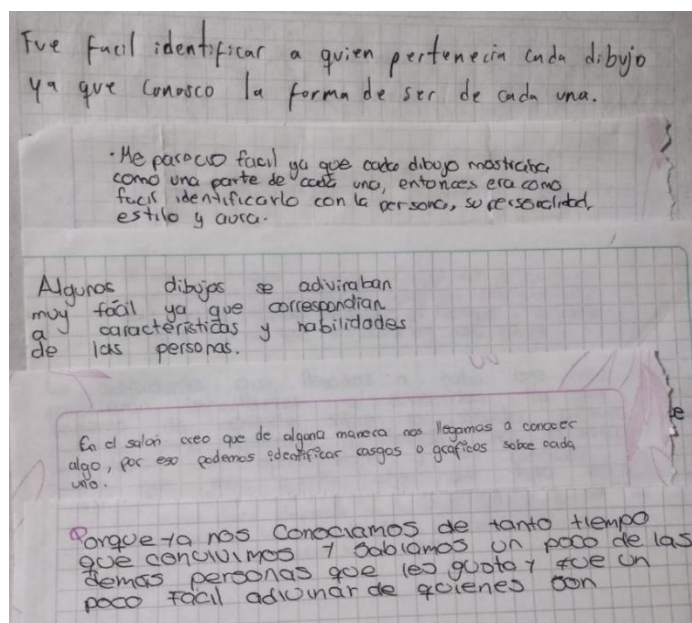 Fue facil identificar a quien pertenecia cada dibujo
ya que conosco la forma de ser de cada una.
• Me parecio facil ya que cada dibujo mostraba
como una parte de cada uno, entonces era como
facil identificarlo con la persona, su personalidad,
estilo y aura.
Algunos dibujos se adivinaban
muy fácil ya que correspondian
a características y habilidades
de las personas.
En el salón creo que de alguna manera nos llegamos a conocer
algo, por eso podemos identificar rasgos o graficos sobre cada
uno.
Porque ya nos conociamos de tanto tiempo
que convivimos y sabiamos un poco de las
demas personas que les gusta y fue un
poco facil adivinar de quienes son